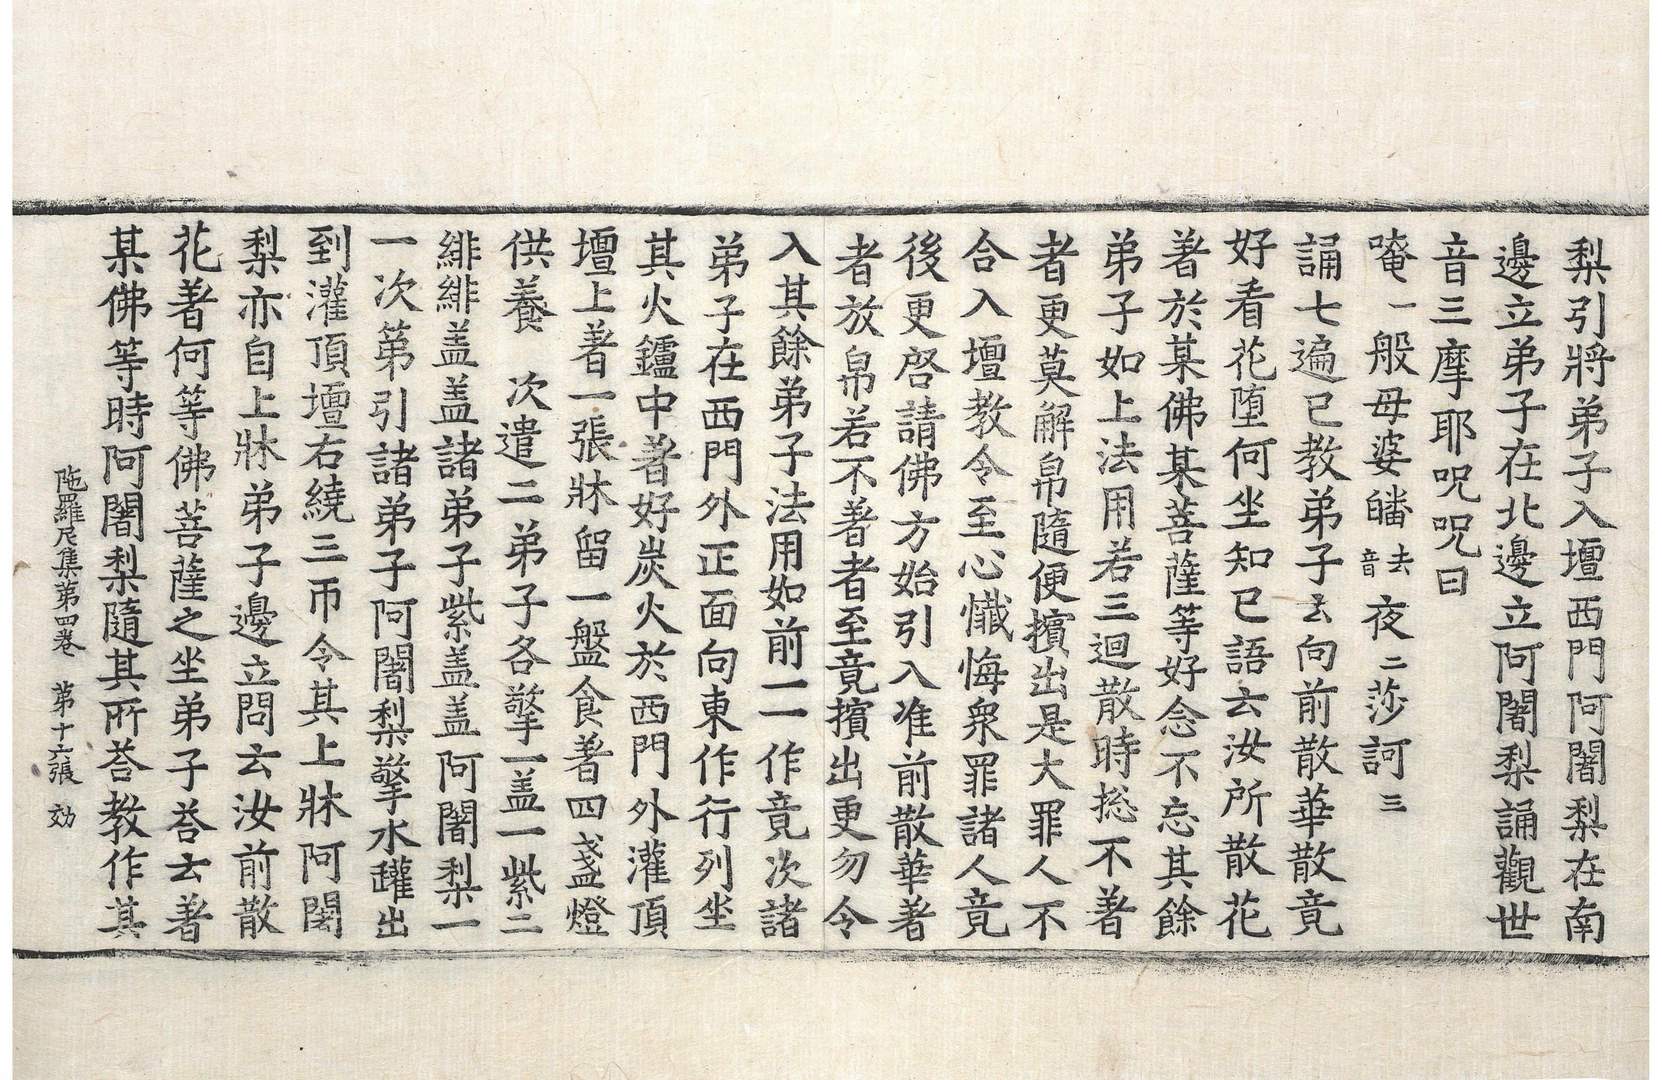 梨引將弟子入壇西門阿闍梨在南
邊立弟子在北邊立阿闍梨誦觀世
音三摩耶呪呪曰
唵一般母婆皤去音夜二莎訶三
誦七遍已教弟子云向前散華散竟
好看花堕何坐知已語云汝所散花
著於某佛某菩薩等好念不忘其餘
弟子如上法用若三迴散時捴不著
者更莫解帛隨便擯出是大罪人不
合入壇教令至心懺悔衆罪諸人竟
後更啓請佛方始引入准前散華著
者放帛若不著者至竟擯出更勿令
入其餘弟子法用如前一一作竟次諸
弟子在西門外正面向東作行列坐
其火鑪中著好炭火於西門外灌頂
壇上著一張牀留一盤食著四盞燈
供養　次遣二弟子各擎一盖一紫二
緋緋盖盖諸弟子紫盖盖阿闍梨一
一次第引諸弟子阿闍梨擎水罐出
到灌頂壇右繞三帀令其上牀阿闍
梨亦自上牀弟子邊立問云汝前散
花著何等佛菩薩之坐弟子荅云著
某佛等時阿闍梨隨其所荅教作其
陁羅尼集第四卷　第十六張　効